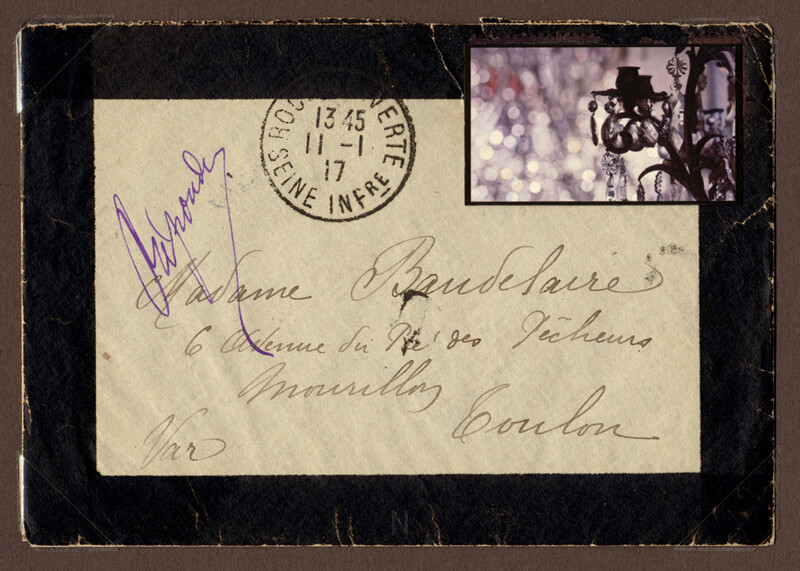 ROC VERTE
13 45
11 -1
17
SEINE INFRE
Répondu
Madame Baudelaire
6 Avenue du Pré des Pêcheurs
Mourillon
Toulon
Var